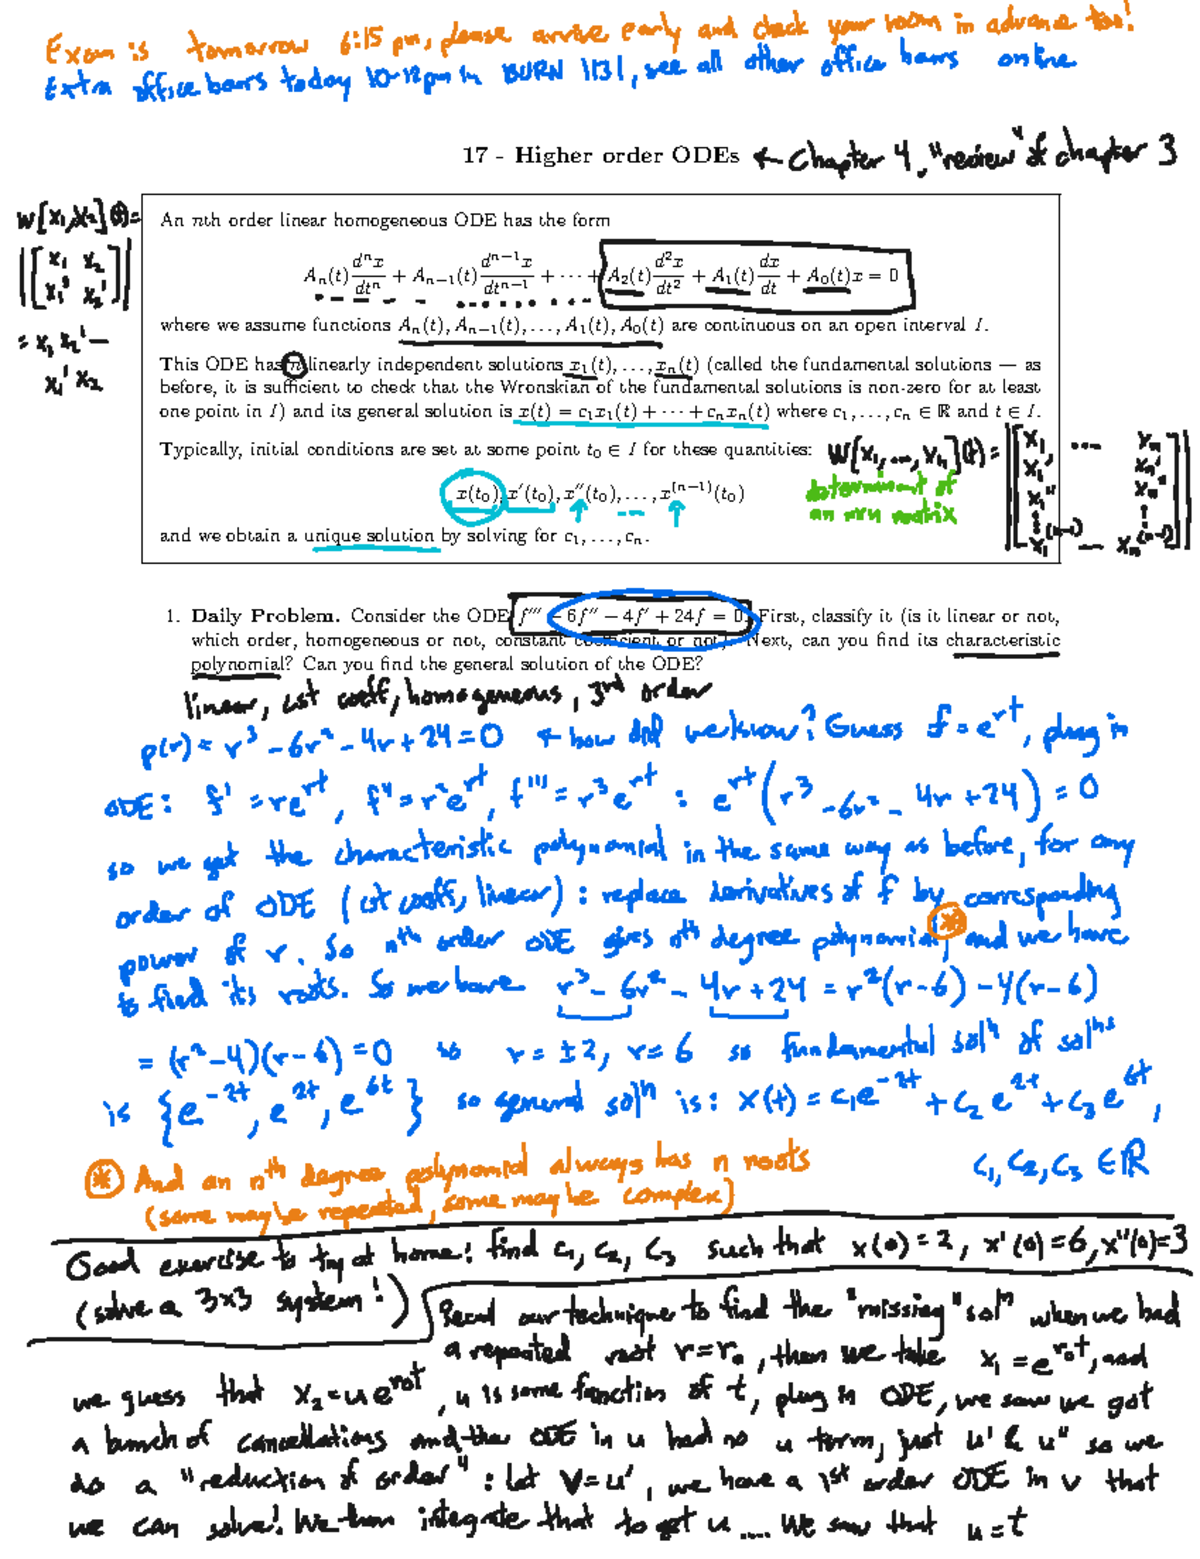 Exam is tomorrow 6:15 pm, please arrive early and check your room in advance too!
Extra office hours today 10-12pm in BURN 1131, see all other office hours online
17 - Higher order ODEs ← Chapter 4, "review" of chapter 3
W[x₁,x₂](t)=
|[x₁ x₂
x₁' x₂']|
= x₁x₂' −
x₁'x₂
An nth order linear homogeneous ODE has the form
Aₙ(t) dⁿx/dtⁿ + Aₙ₋₁(t) dⁿ⁻¹x/dtⁿ⁻¹ + ··· + A₂(t) d²x/dt² + A₁(t) dx/dt + A₀(t)x = 0
where we assume functions Aₙ(t), Aₙ₋₁(t), ..., A₁(t), A₀(t) are continuous on an open interval I.
This ODE has n linearly independent solutions x₁(t), ..., xₙ(t) (called the fundamental solutions — as
before, it is sufficient to check that the Wronskian of the fundamental solutions is non-zero for at least
one point in I) and its general solution is x(t) = c₁x₁(t) + ··· + cₙxₙ(t) where c₁, ..., cₙ ∈ ℝ and t ∈ I.
Typically, initial conditions are set at some point t₀ ∈ I for these quantities:
x(t₀), x'(t₀), x''(t₀), ..., x⁽ⁿ⁻¹⁾(t₀)
and we obtain a unique solution by solving for c₁, ..., cₙ.
W[x₁, ..., xₙ](t) =
|[x₁ ... xₙ
x₁' xₙ'
x₁'' xₙ''
⋮ ⋮
x₁⁽ⁿ⁻¹⁾ ... xₙ⁽ⁿ⁻¹⁾]|
determinant of
an nxn matrix
1. Daily Problem. Consider the ODE f''' − 6f'' − 4f' + 24f = 0. First, classify it (is it linear or not,
which order, homogeneous or not, constant coefficient or not). Next, can you find its characteristic
polynomial? Can you find the general solution of the ODE?
linear, cst coeff, homogeneous, 3rd order
p(r) = r³ − 6r² − 4r + 24 = 0 ← how did we know? Guess f = eʳᵗ, plug in
ODE: f' = reʳᵗ, f'' = r²eʳᵗ, f''' = r³eʳᵗ : eʳᵗ(r³ − 6r² − 4r + 24) = 0
so we get the characteristic polynomial in the same way as before, for any
order of ODE (cst coeff, linear) : replace derivatives of f by corresponding
power of r. So nth order ODE gives nth degree polynomial, (*) and we have
to find its roots. So we have r³ − 6r² − 4r + 24 = r²(r−6) − 4(r−6)
= (r²−4)(r−6) = 0 so r = ±2, r = 6 so fundamental solⁿ of solⁿˢ
is {e⁻²ᵗ, e²ᵗ, e⁶ᵗ} so general solⁿ is: x(t) = c₁e⁻²ᵗ + c₂e²ᵗ + c₃e⁶ᵗ,
c₁, c₂, c₃ ∈ ℝ
(*) And an nth degree polynomial always has n roots
(some may be repeated, some may be complex)
Good exercise to try at home: find c₁, c₂, c₃ such that x(0) = 2, x'(0) = 6, x''(0) = 3
(solve a 3x3 system!)
Recall our technique to find the "missing" solⁿ when we had
a repeated root r = r₀, then we take x₁ = eʳ⁰ᵗ, and
we guess that x₂ = ueʳ⁰ᵗ, u is some function of t, plug in ODE, we saw we got
a bunch of cancellations and the ODE in u had no u term, just u' & u'' so we
do a "reduction of order" : let v = u', we have a 1st order ODE in v that
we can solve! We then integrate that to get u .... We saw that u = t